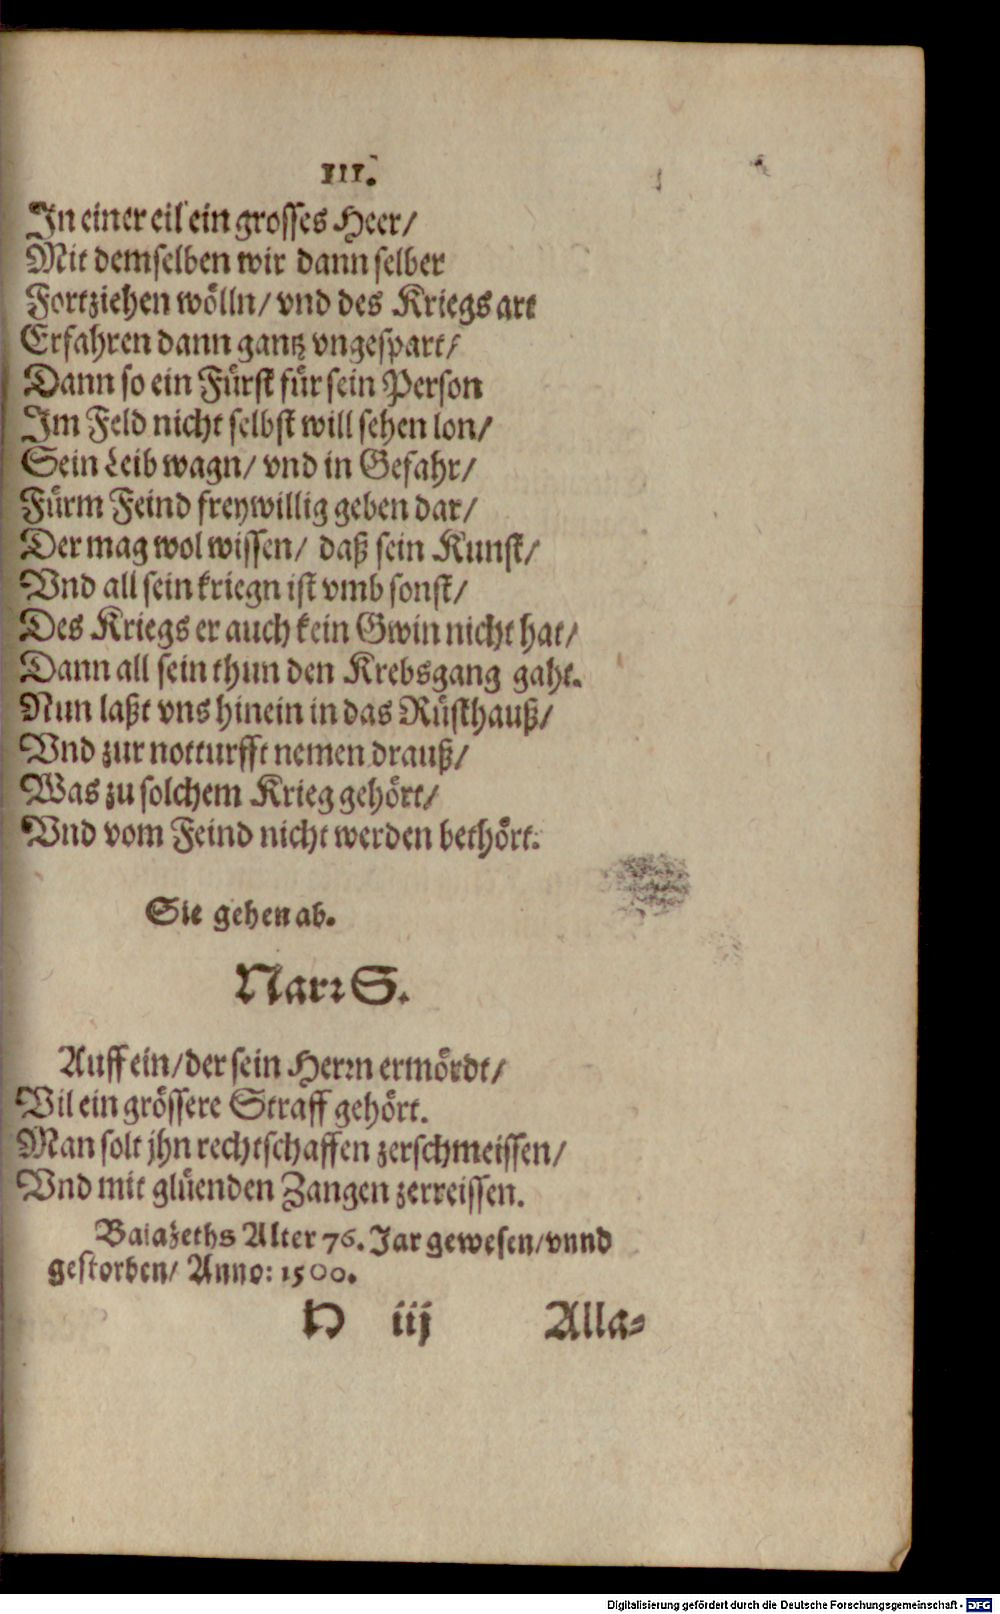 III.
In einer eil ein grosses Heer/
Mit demselben wir dann selber
Fortziehen wölln/ vnd des Kriegs art
Erfahren dann gantz vngespart/
Dann so ein Fürst für sein Person
Im Feld nicht selbst will sehen lon/
Sein Leib wagn/ vnd in Gefahr/
Fürm Feind freywillig geben dar/
Der mag wol wissen/ daß sein Kunst/
Vnd all sein kriegn ist vmb sonst/
Des Kriegs er auch kein Gwin nicht hat/
Dann all sein thun den Krebsgang gaht.
Nun laßt vns hinein in das Rüsthauß/
Vnd zur notturfft nemen drauß/
Was zu solchem Krieg gehört/
Vnd vom Feind nicht werden bethört.
Sie gehen ab.
Narr S.
Auff ein/ der sein Herrn ermördt/
Vil ein grössere Straff gehört.
Man solt jhn rechtschaffen zerschmeissen/
Vnd mit glüenden Zangen zerreissen.
Baiazeths Alter 76. Jar gewesen/ vnnd
gestorben/ Anno: 1500.
D iij Alla-
Digitalisierung gefördert durch die Deutsche Forschungsgemeinschaft - DFG